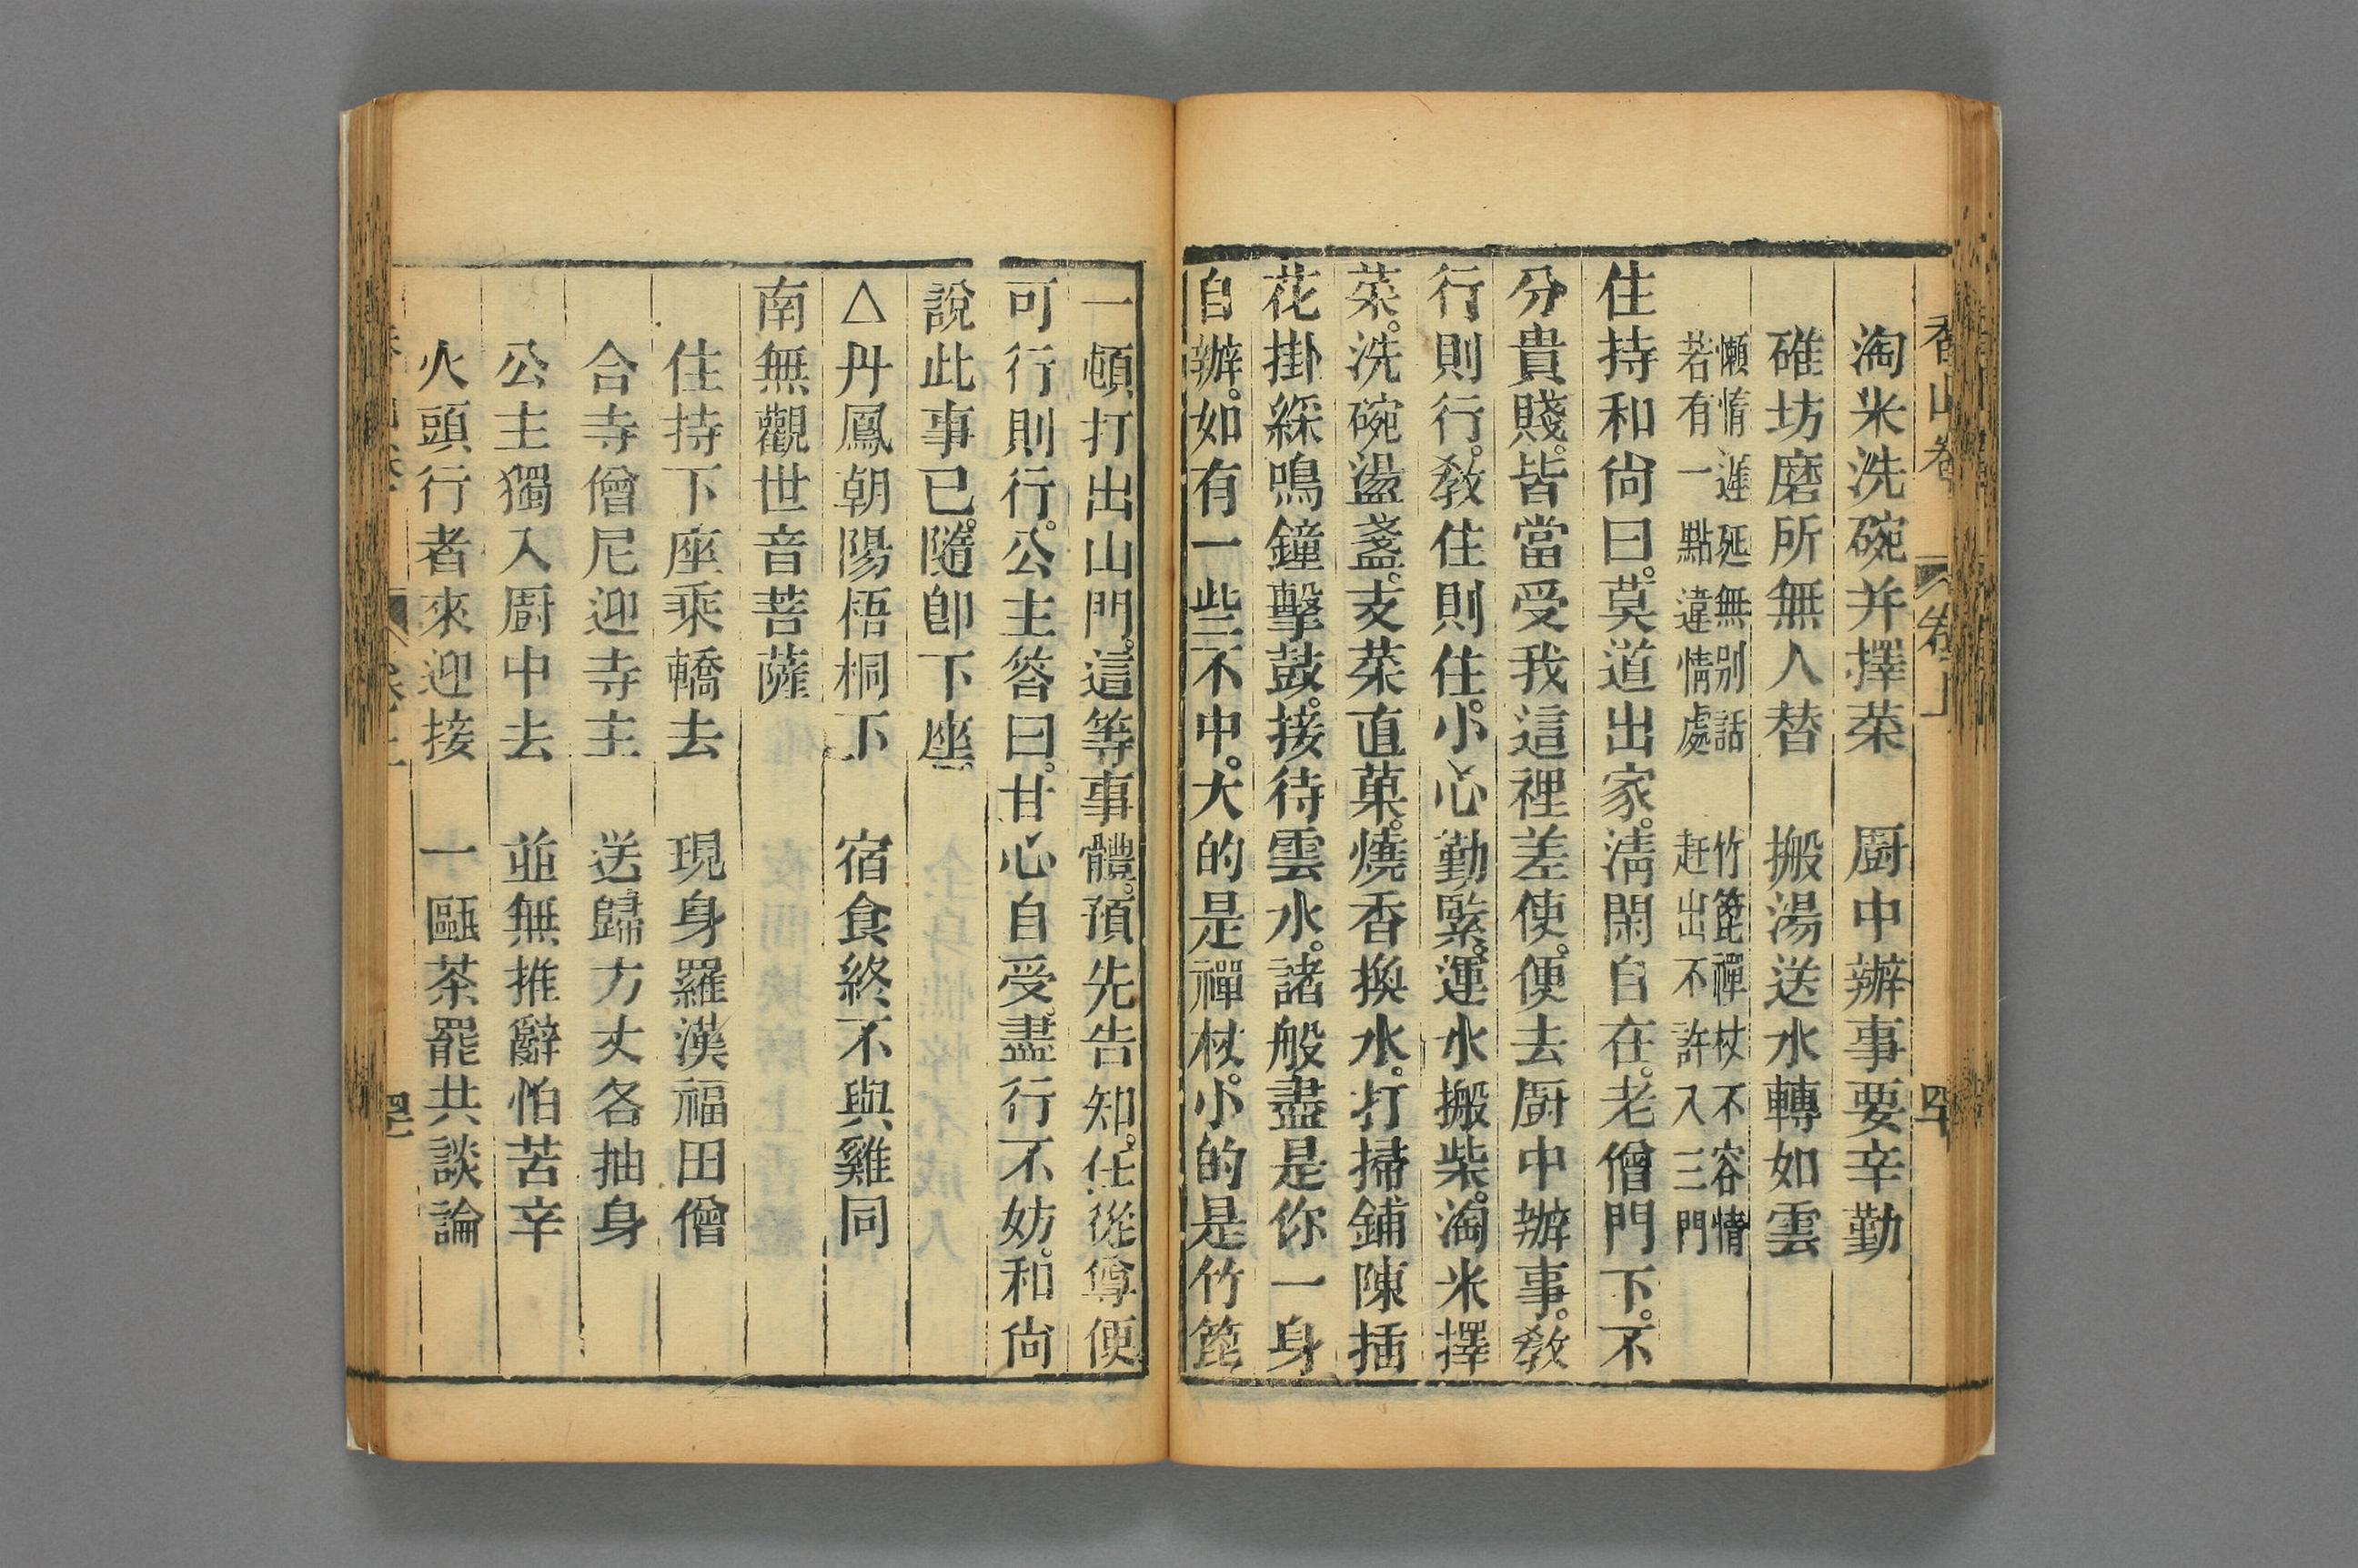 香山卷 卷上 四十
淘米洗碗并擇菜 厨中辦事要辛勤
碓坊磨所無人替 搬湯送水轉如雲
懶惰遲延無别話 竹篦禪杖不容情
若有一點違情處 赶出不許入三門
住持和尙曰。莫道出家。淸閑自在。老僧門下。不
分貴賤。皆當受我這裡差使。便去厨中辦事。敎
行則行。敎住則住。小心勤緊。運水搬柴。淘米擇
菜。洗碗盪盞。支菜直菓。燒香換水。打掃鋪陳插
花掛綵鳴鐘擊鼓。接待雲水。諸般盡是你一身
自辦。如有一些不中。大的是禪杖。小的是竹篦
一頓打出山門。這等事體。預先告知。任從尊便
可行則行。公主答曰。甘心自受。盡行不妨。和尙
說此事已。隨卽下座。
△丹鳳朝陽梧桐下 宿食終不與雞同
南無觀世音菩薩
住持下座乘轎去 現身羅漢福田僧
合寺僧尼迎寺主 送歸方丈各抽身
公主獨入厨中去 並無推辭怕苦辛
火頭行者來迎接 一甌茶罷共談論